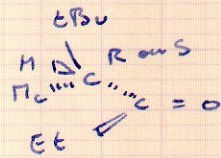 tBu
H C R ou S
Me C = O
Et